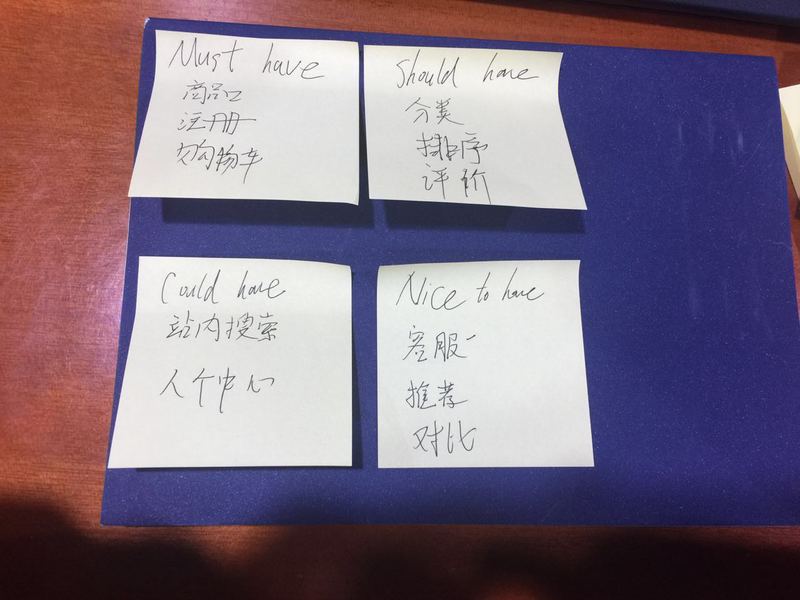 Must have
商品
注册
购物车
Should have
分类
排序
评价
Could have
站内搜索
人个中心
Nice to have
客服
推荐
对比